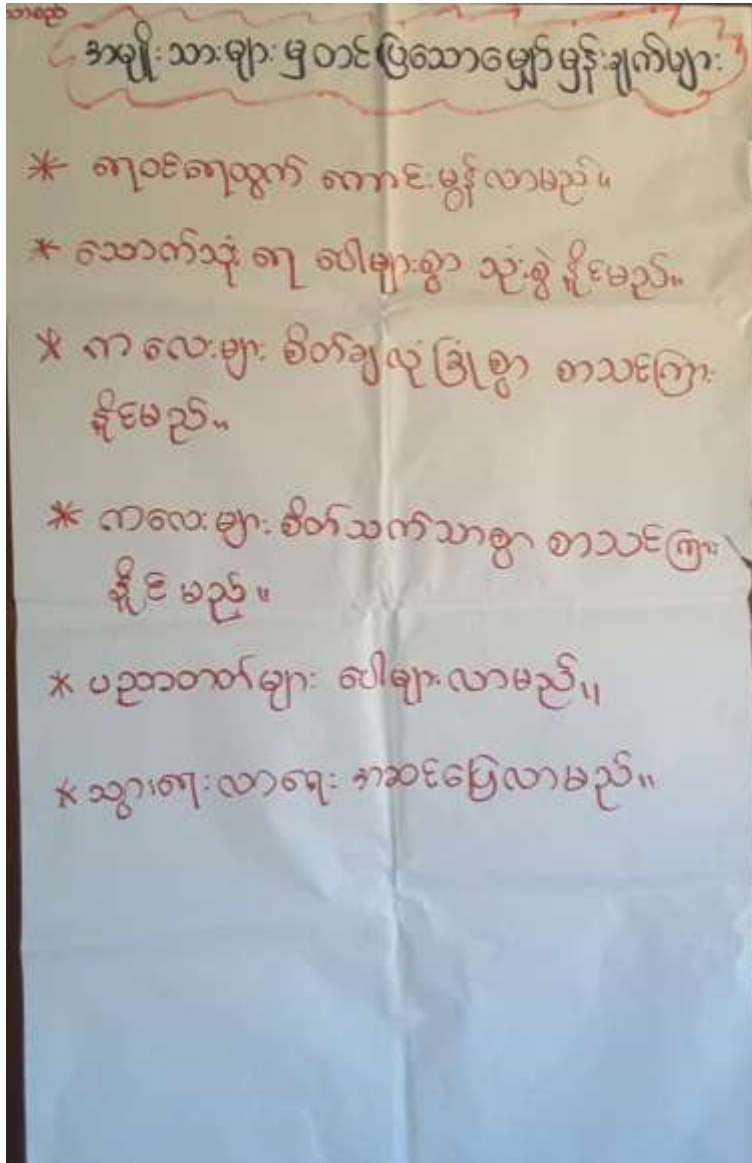 သာစည်
အမျိုးသားများ မှ တင်ပြသောမျှော်မှန်းချက်များ
* ရေဝင်ရေထွက် ကောင်းမွန်လာမည်။
* သောက်သုံး ရေ ပေါများစွာ သုံးစွဲ နိုင်မည်။
* ကလေးများ စိတ်ချလုံခြုံစွာ စာသင်ကြား
နိုင်မည်။
* ကလေးများ စိတ်သက်သာစွာ စာသင်ကြား
နိုင်မည်။
* ပညာတတ်များ ပေါများလာမည်။
* သွားရေးလာရေး အဆင်ပြေလာမည်။